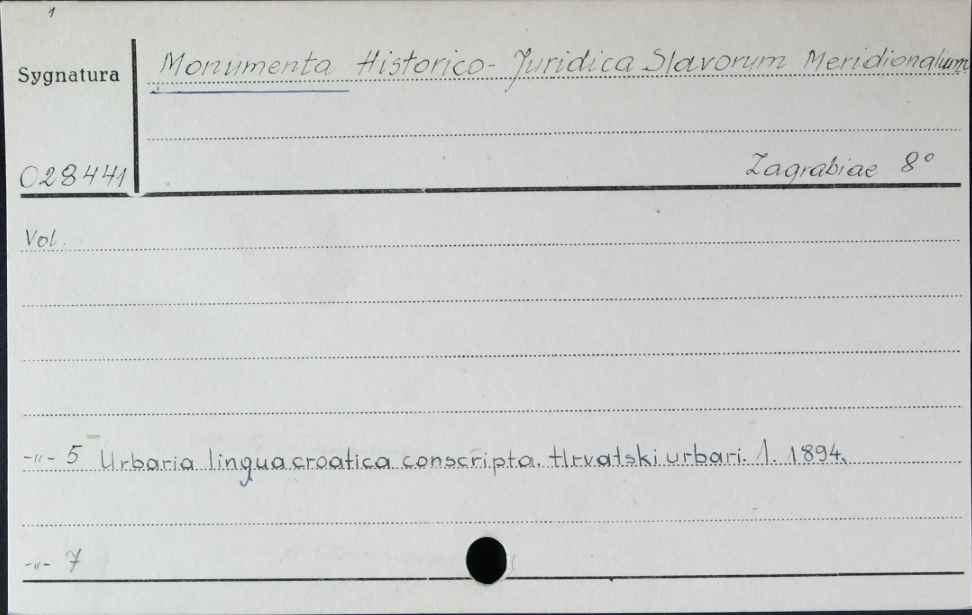 1
Sygnatura
Monumenta Historico-Juridica Slavorum Meridionalium
028441
Zagrabiae 8°
Vol.
-"- 5 Urbaria lingua croatica conscripta. Hrvatski urbari. 1. 1894.
-"- 7